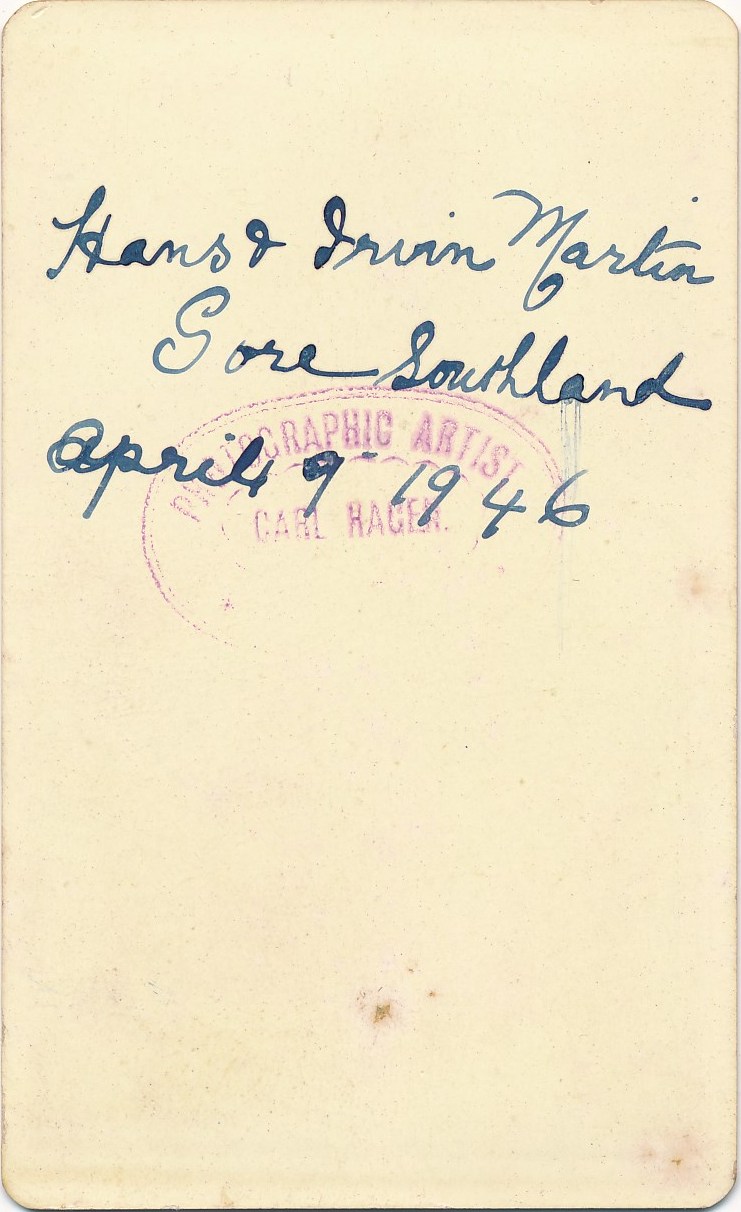 Hans & Irvin Martin
Gore Southland
PHOTOGRAPHIC ARTIST
April 9 1946
CARL RAGEN.